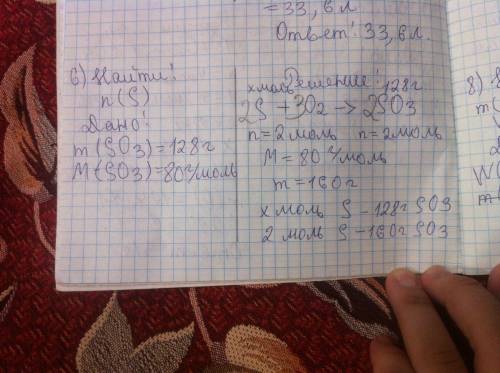 = 33,6 л
Ответ: 33,6 л.
6) Найти:
n(S)
Дано:
m(SO3)=128г
M(SO3)=80г/моль
Решение:
x моль 128г
2S + 3O2 → 2SO3
n=2моль n=2моль
M=80г/моль
m=160г
x моль S - 128г SO3
2 моль S - 160г SO3
8)
m